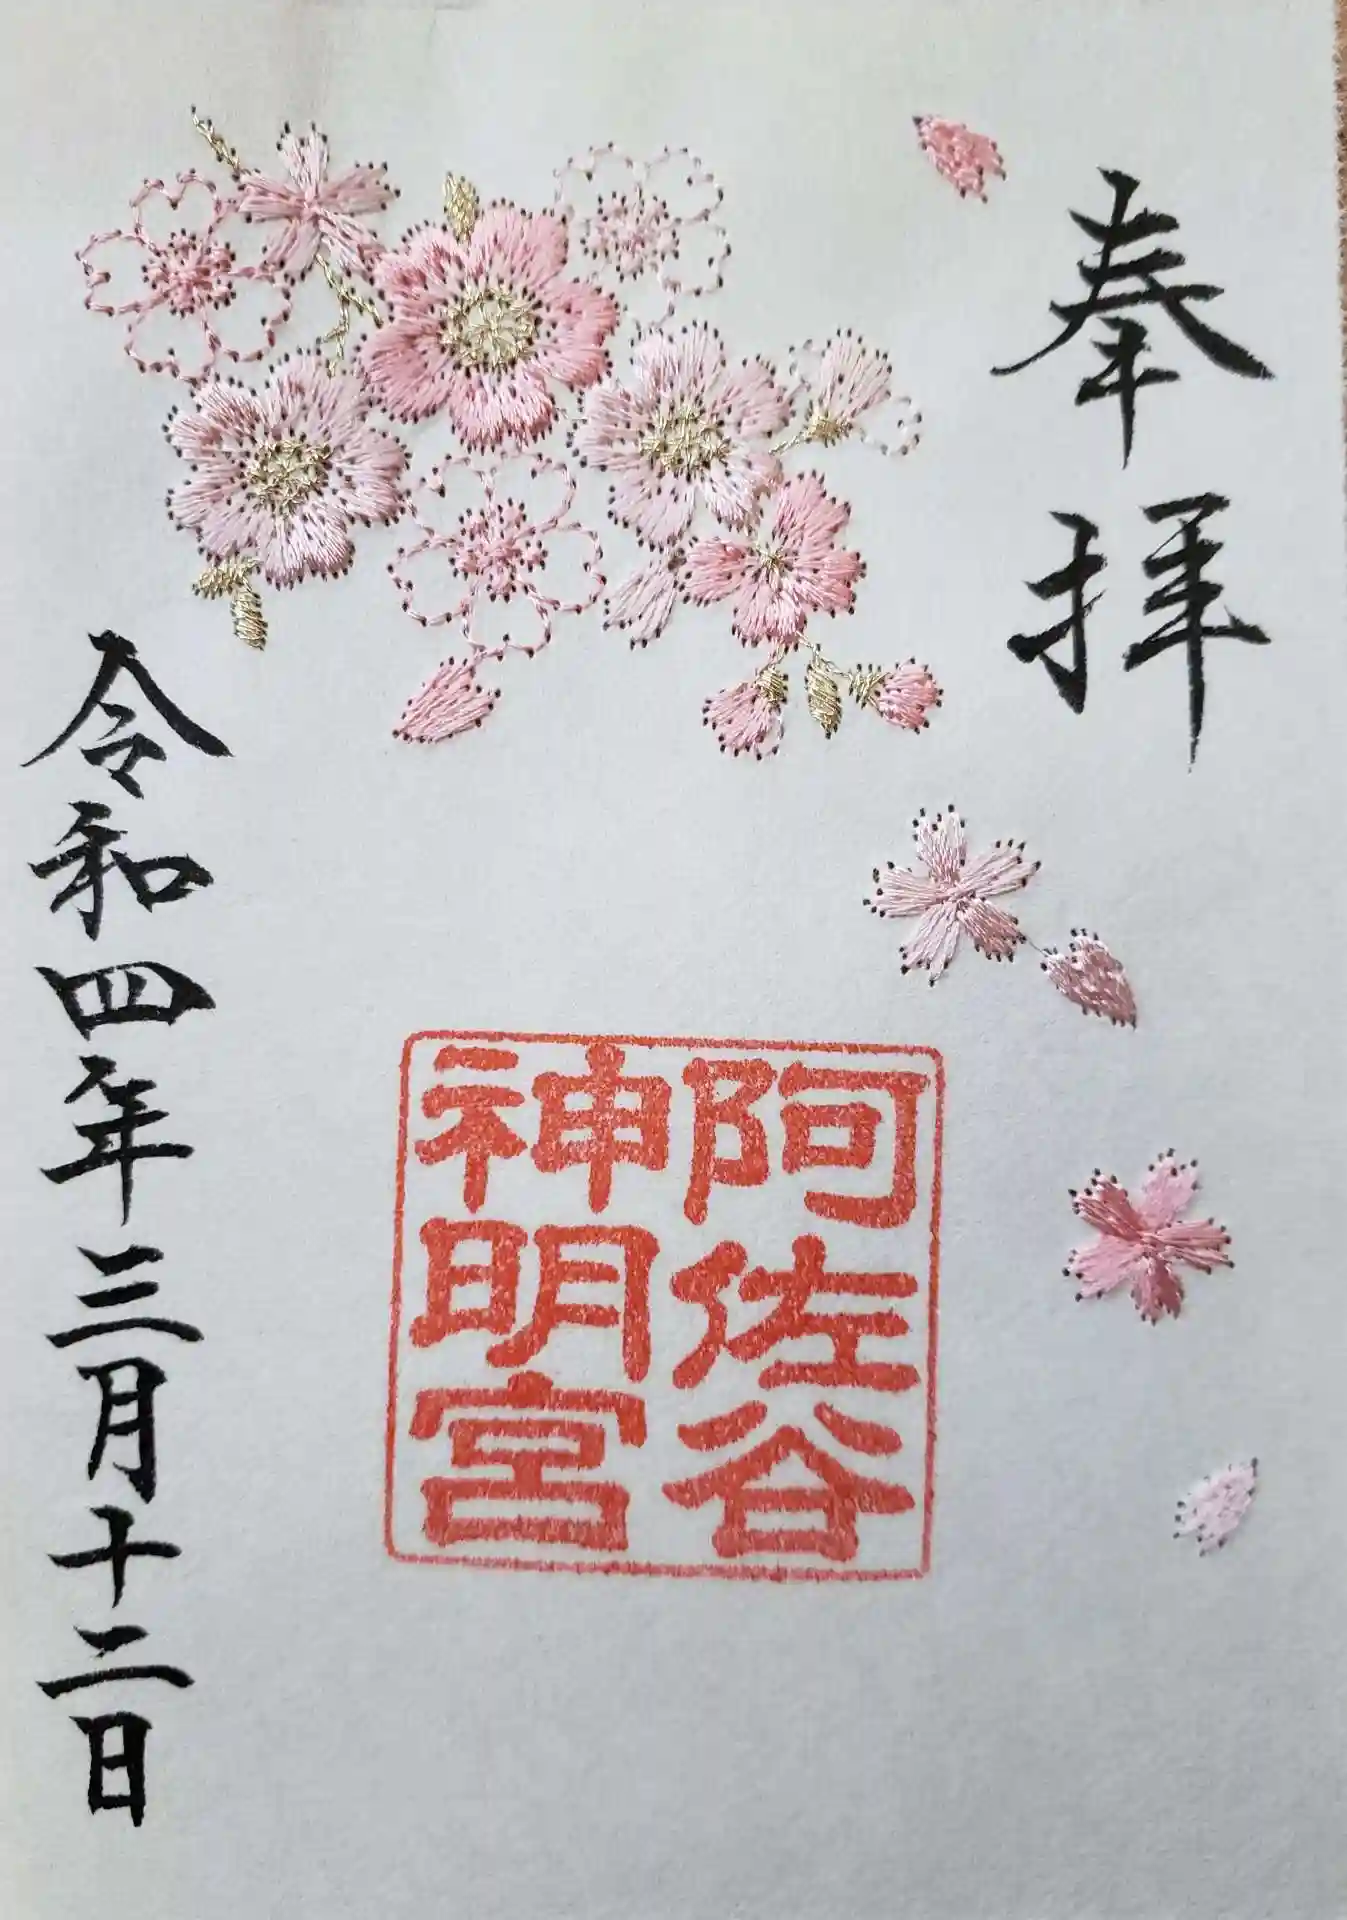 奉拝
阿佐谷
神明宮
令和四年三月十二日